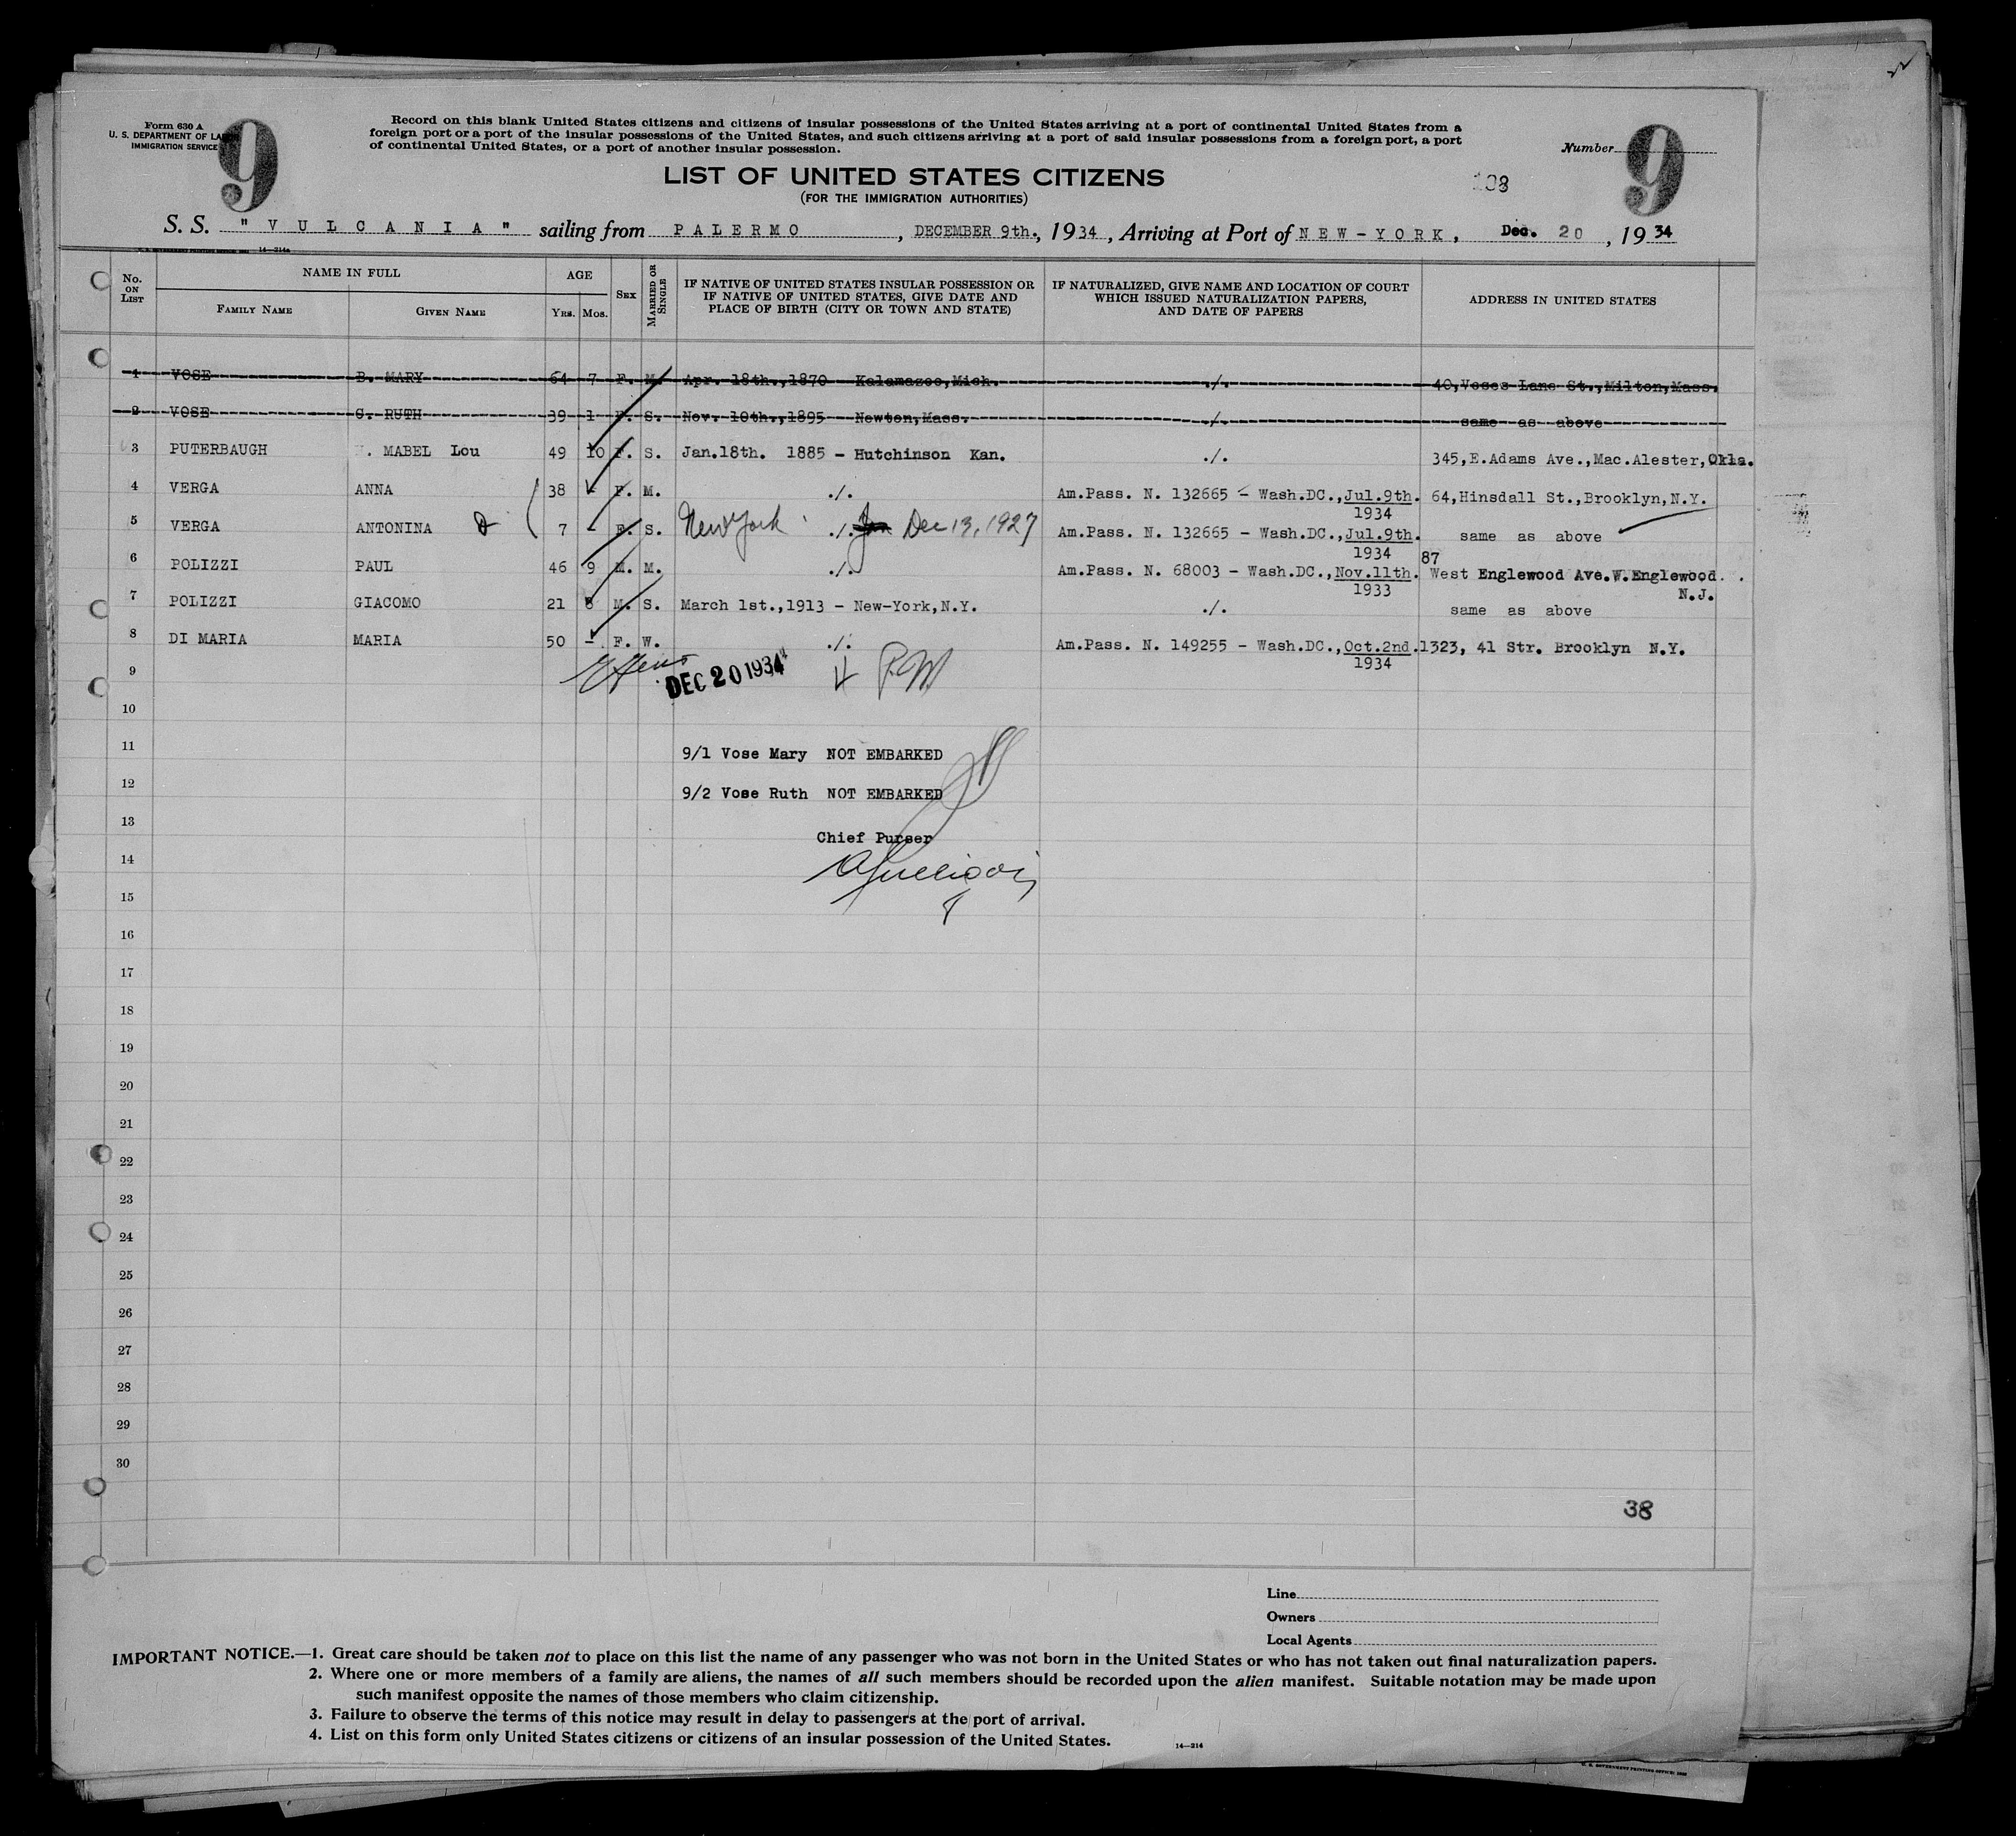 Form 630 A
U. S. DEPARTMENT OF LABOR
IMMIGRATION SERVICE
9
Record on this blank United States citizens and citizens of insular possessions of the United States arriving at a port of continental United States from a
foreign port or a port of the insular possessions of the United States, and such citizens arriving at a port of said insular possessions from a foreign port, a port
of continental United States, or a port of another insular possession.
Number
9
LIST OF UNITED STATES CITIZENS
(FOR THE IMMIGRATION AUTHORITIES)
S. S. "VULCANIA" sailing from PALERMO, DECEMBER 9th., 1934, Arriving at Port of NEW-YORK, Dec. 20, 1934
14—214a
No. ON LIST
NAME IN FULL
FAMILY NAME
GIVEN NAME
AGE
YRS. MOS.
SEX
MARRIED OR SINGLE
IF NATIVE OF UNITED STATES INSULAR POSSESSION OR
IF NATIVE OF UNITED STATES, GIVE DATE AND
PLACE OF BIRTH (CITY OR TOWN AND STATE)
IF NATURALIZED, GIVE NAME AND LOCATION OF COURT
WHICH ISSUED NATURALIZATION PAPERS,
AND DATE OF PAPERS
ADDRESS IN UNITED STATES
1 VOSE B. MARY 64 7 F. M. Apr. 18th.,1870 Kalamazoo,Mich. ./. 40,Voses Lane St.,Milton,Mass.
2 VOSE C. RUTH 39 1 F. S. Nov. 10th.,1895 Newton,Mass. ./. same as above
3 PUTERBAUGH . MABEL Lou 49 10 F. S. Jan.18th. 1885 - Hutchinson Kan. ./. 345,E.Adams Ave.,Mac.Alester,Okla.
4 VERGA ANNA 38 - F. M. ./. Am.Pass. N. 132665 - Wash.DC.,Jul.9th. 1934 64,Hinsdall St.,Brooklyn,N.Y.
5 VERGA ANTONINA 7 - F. S. New York ./. Jan Dec 13, 1927 Am.Pass. N. 132665 - Wash.DC.,Jul.9th. 1934 same as above
6 POLIZZI PAUL 46 9 M. M. ./. Am.Pass. N. 68003 - Wash.DC.,Nov.11th. 1933 87 West Englewood Ave.W.Englewood. N.J.
7 POLIZZI GIACOMO 21 8 M. S. March 1st.,1913 - New-York,N.Y. ./. same as above
8 DI MARIA MARIA 50 - F. W. ./. Am.Pass. N. 149255 - Wash.DC.,Oct.2nd. 1934 1323, 41 Str. Brooklyn N.Y.
9
DEC 20 1934
10
11
9/1 Vose Mary NOT EMBARKED
12
9/2 Vose Ruth NOT EMBARKED
13
Chief Purser
14
15
16
17
18
19
20
21
22
23
24
25
26
27
28
29
30
38
Line
Owners
Local Agents
IMPORTANT NOTICE.—1. Great care should be taken not to place on this list the name of any passenger who was not born in the United States or who has not taken out final naturalization papers.
2. Where one or more members of a family are aliens, the names of all such members should be recorded upon the alien manifest. Suitable notation may be made upon
such manifest opposite the names of those members who claim citizenship.
3. Failure to observe the terms of this notice may result in delay to passengers at the port of arrival.
4. List on this form only United States citizens or citizens of an insular possession of the United States.
14—214